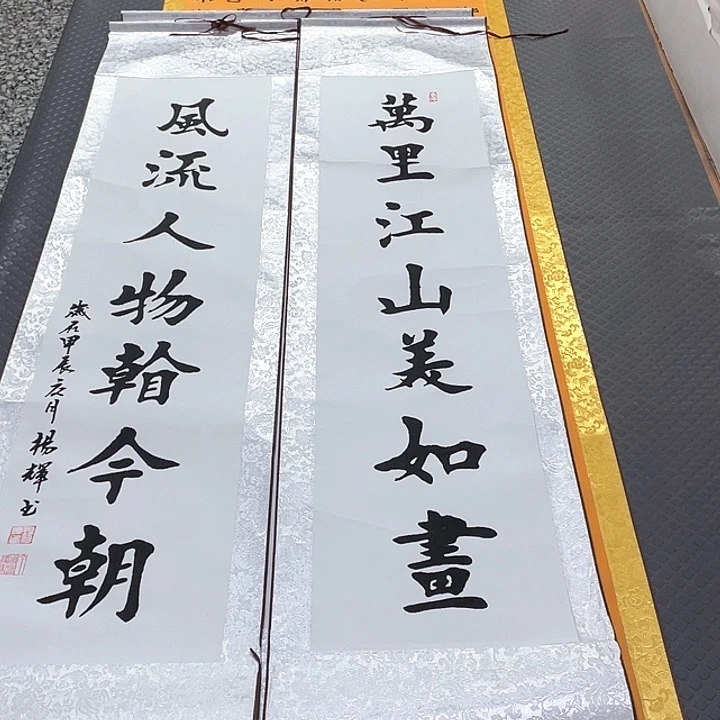 萬里江山美如畫
風流人物看今朝
歲在甲辰月楊輝书